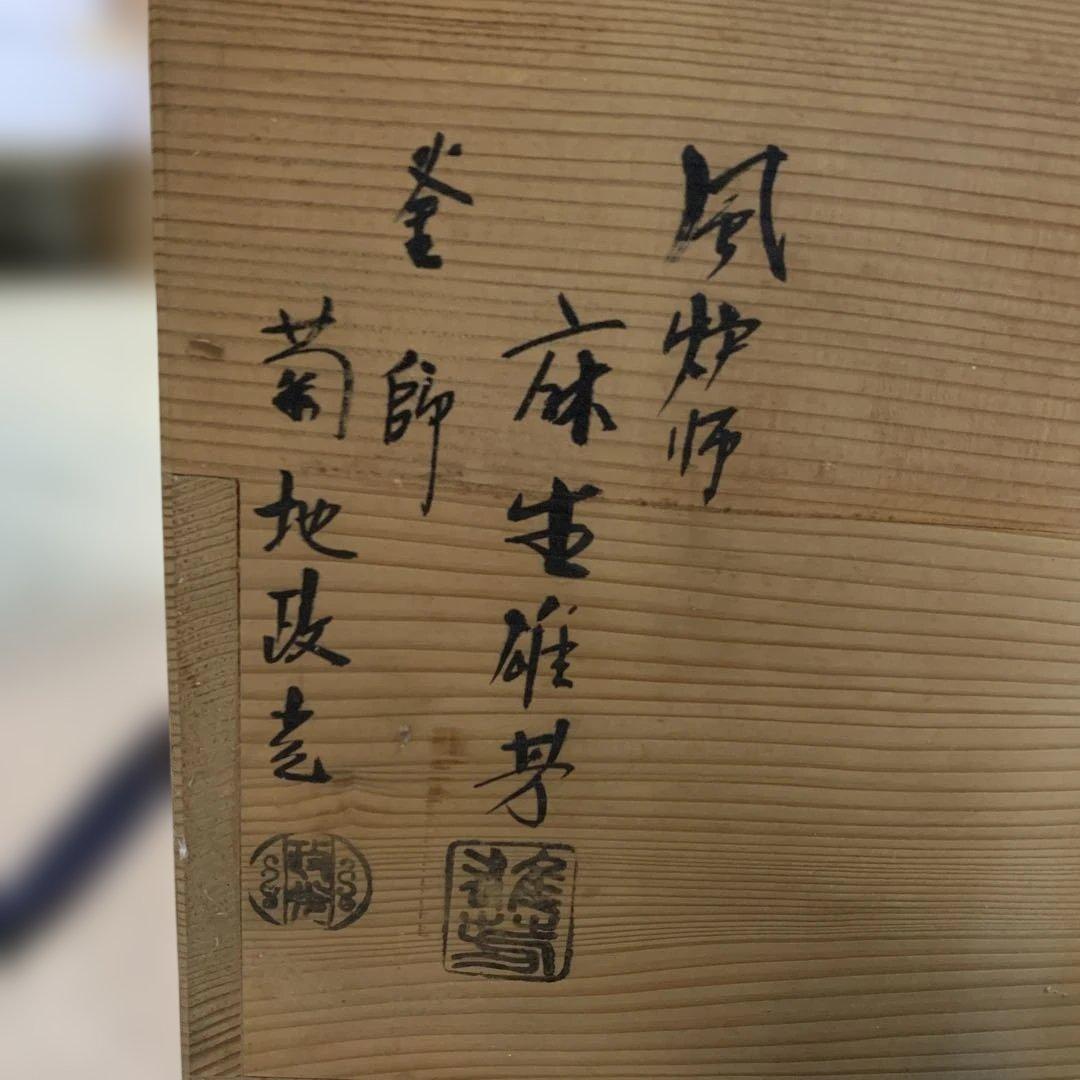 風炉师
麻生雄芳
釜師
菊地政光